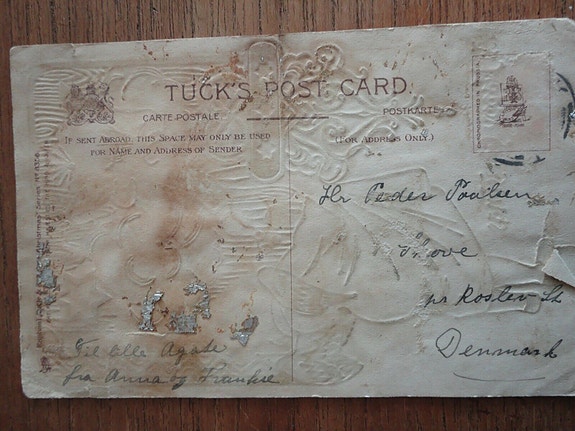 TUCK'S POST CARD.
CARTE POSTALE.
POSTKARTE.
IF SENT ABROAD, THIS SPACE MAY ONLY BE USED
FOR NAME AND ADDRESS OF SENDER.
(FOR ADDRESS ONLY.)
Hr Peder Poulsen
pr Roslev St
Denmark
Til lille Agate
fra Anna og Frankie